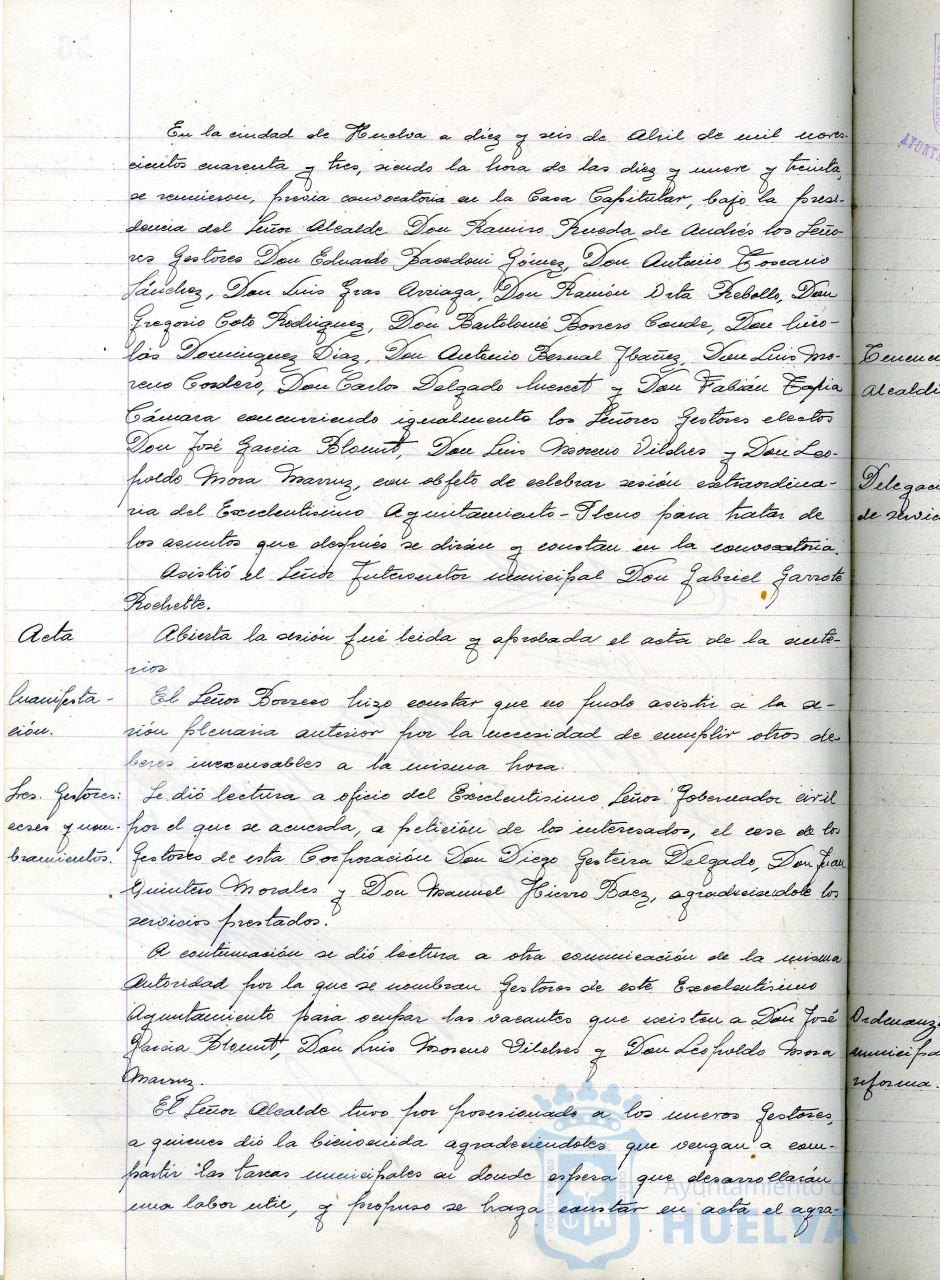 En la ciudad de Huelva a diez y seis de Abril de mil nove-
cientos cuarenta y tres, siendo la hora de las diez y nueve y treinta,
se reunieron, previa convocatoria en la Casa Capitular, bajo la presi-
dencia del Señor Alcalde Don Ramiro Rueda de Andrés los Seño-
res Gestores Don Eduardo Gómez, Don Antonio Toscano
Sánchez, Don Luis Gras Arriaga, Don Ramón Orta Rebollo, Don
Gregorio Coto Rodriguez, Don Bartolomé Borrero Conde, Don Nico-
lás Dominguez Díaz, Don Antonio Bernal Ibañez, Don Luis Mo-
reno Cordero, Don Carlos Delgado y Don Fabián Tapia
Cámara concurriendo igualmente los Señores Gestores electos
Don José Garcia Blount, Don Luis Moreno Vilches y Don Leo-
poldo Mora Marruz, con objeto de celebrar sesión extraordina-
ria del Excelentisimo Ayuntamiento-Pleno para tratar de
los asuntos que después se dirán y constan en la convocatoria.
Asistió el Señor Interventor municipal Don Gabriel Garrote
Rochette.
Acta
Abierta la sesión fué leida y aprobada el acta de la ante-
rior
Manifesta-
ción.
El Señor Borrero hizo constar que no pudo asistir a la se-
sión plenaria anterior por la necesidad de cumplir otros de-
beres inexcusables a la misma hora.
Sres. Gestores:
ceses y nom-
bramientos.
Se dió lectura a oficio del Excelentisimo Señor Gobernador civil
por el que se acuerda, a petición de los interesados, el cese de los
Gestores de esta Corporación Don Diego Gesteira Delgado, Don Juan
Quintero Morales y Don Manuel Hierro Baez, agradeciendole los
servicios prestados.
A continuación se dió lectura a otra comunicación de la misma
Autoridad por la que se nombran Gestores de este Excelentisimo
Ayuntamiento para ocupar las vacantes que existen a Don José
Garcia Blount, Don Luis Moreno Vilches y Don Leopoldo Mora
Marruz.
El Señor Alcalde tuvo por posesionado a los nuevos Gestores,
a quienes dió la bienvenida agradeciendoles que vengan a com-
partir las tareas municipales en donde espera que desarrollarán
una labor util, y propuso se haga constar en acta el agra-
Alcaldi
Delegaci
de servic
Ordenanz
municipa
reforma.
Ayuntamiento de
HUELVA